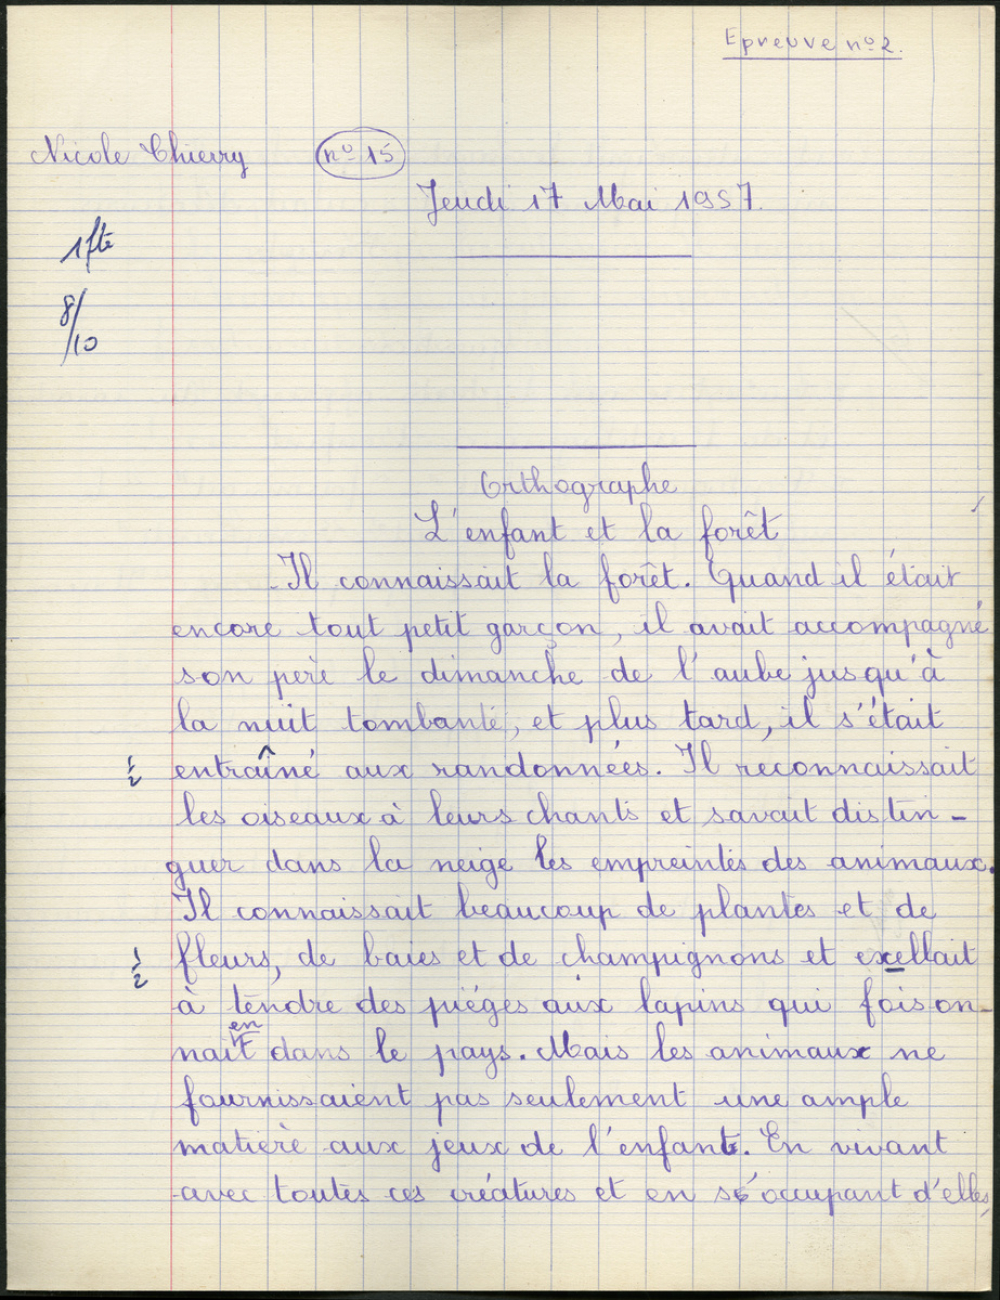 Epreuve nº 2.
Nicole Thierry nº 15
Jeudi 17 Mai 1957.
1 fte
8/10
Orthographe
L'enfant et la forêt
Il connaissait la forêt. Quand il était
encore tout petit garçon, il avait accompagné
son père le dimanche de l'aube jusqu'à
la nuit tombante, et plus tard, il s'était
1/2 entraîné aux randonnées. Il reconnaissait
les oiseaux à leurs chants et savait distin-
guer dans la neige les empreintes des animaux.
Il connaissait beaucoup de plantes et de
1/2 fleurs, de baies et de champignons et exellait
à tendre des pièges aux lapins qui foison-
en
nait dans le pays. Mais les animaux ne
fournissaient pas seulement une ample
matière aux jeux de l'enfant. En vivant
avec toutes ces créatures et en s'occupant d'elles,